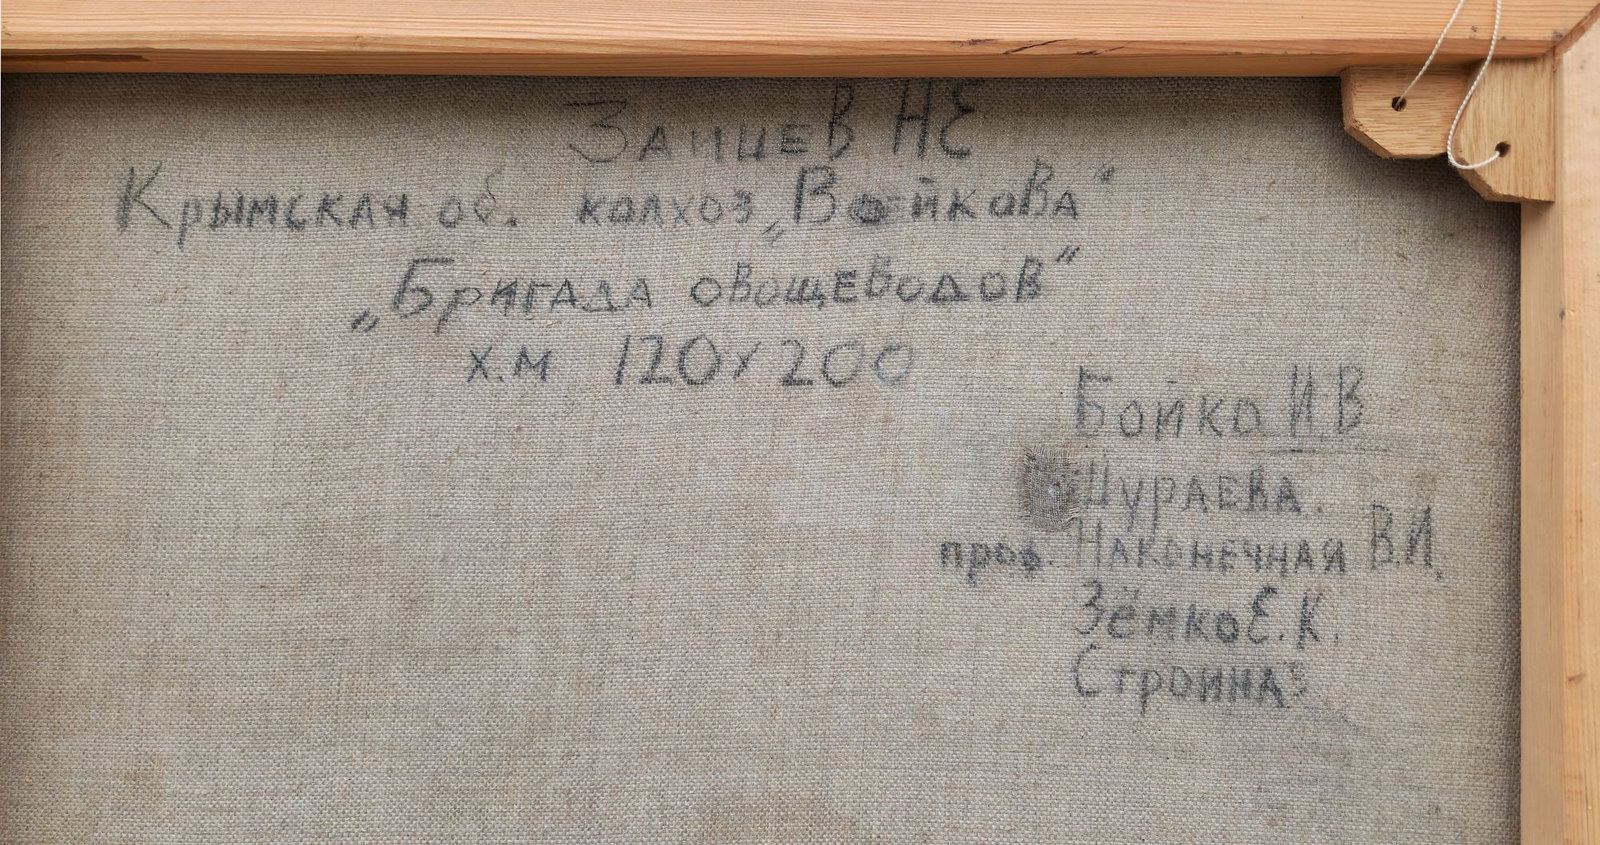 Зайцев НЕ
Крымская об. колхоз „Войкова"
„Бригада овощеводов"
х.м 120х200
Бойко И.В
Шураева.
проф. Наконечная В.И.
Зёмко Е.К.